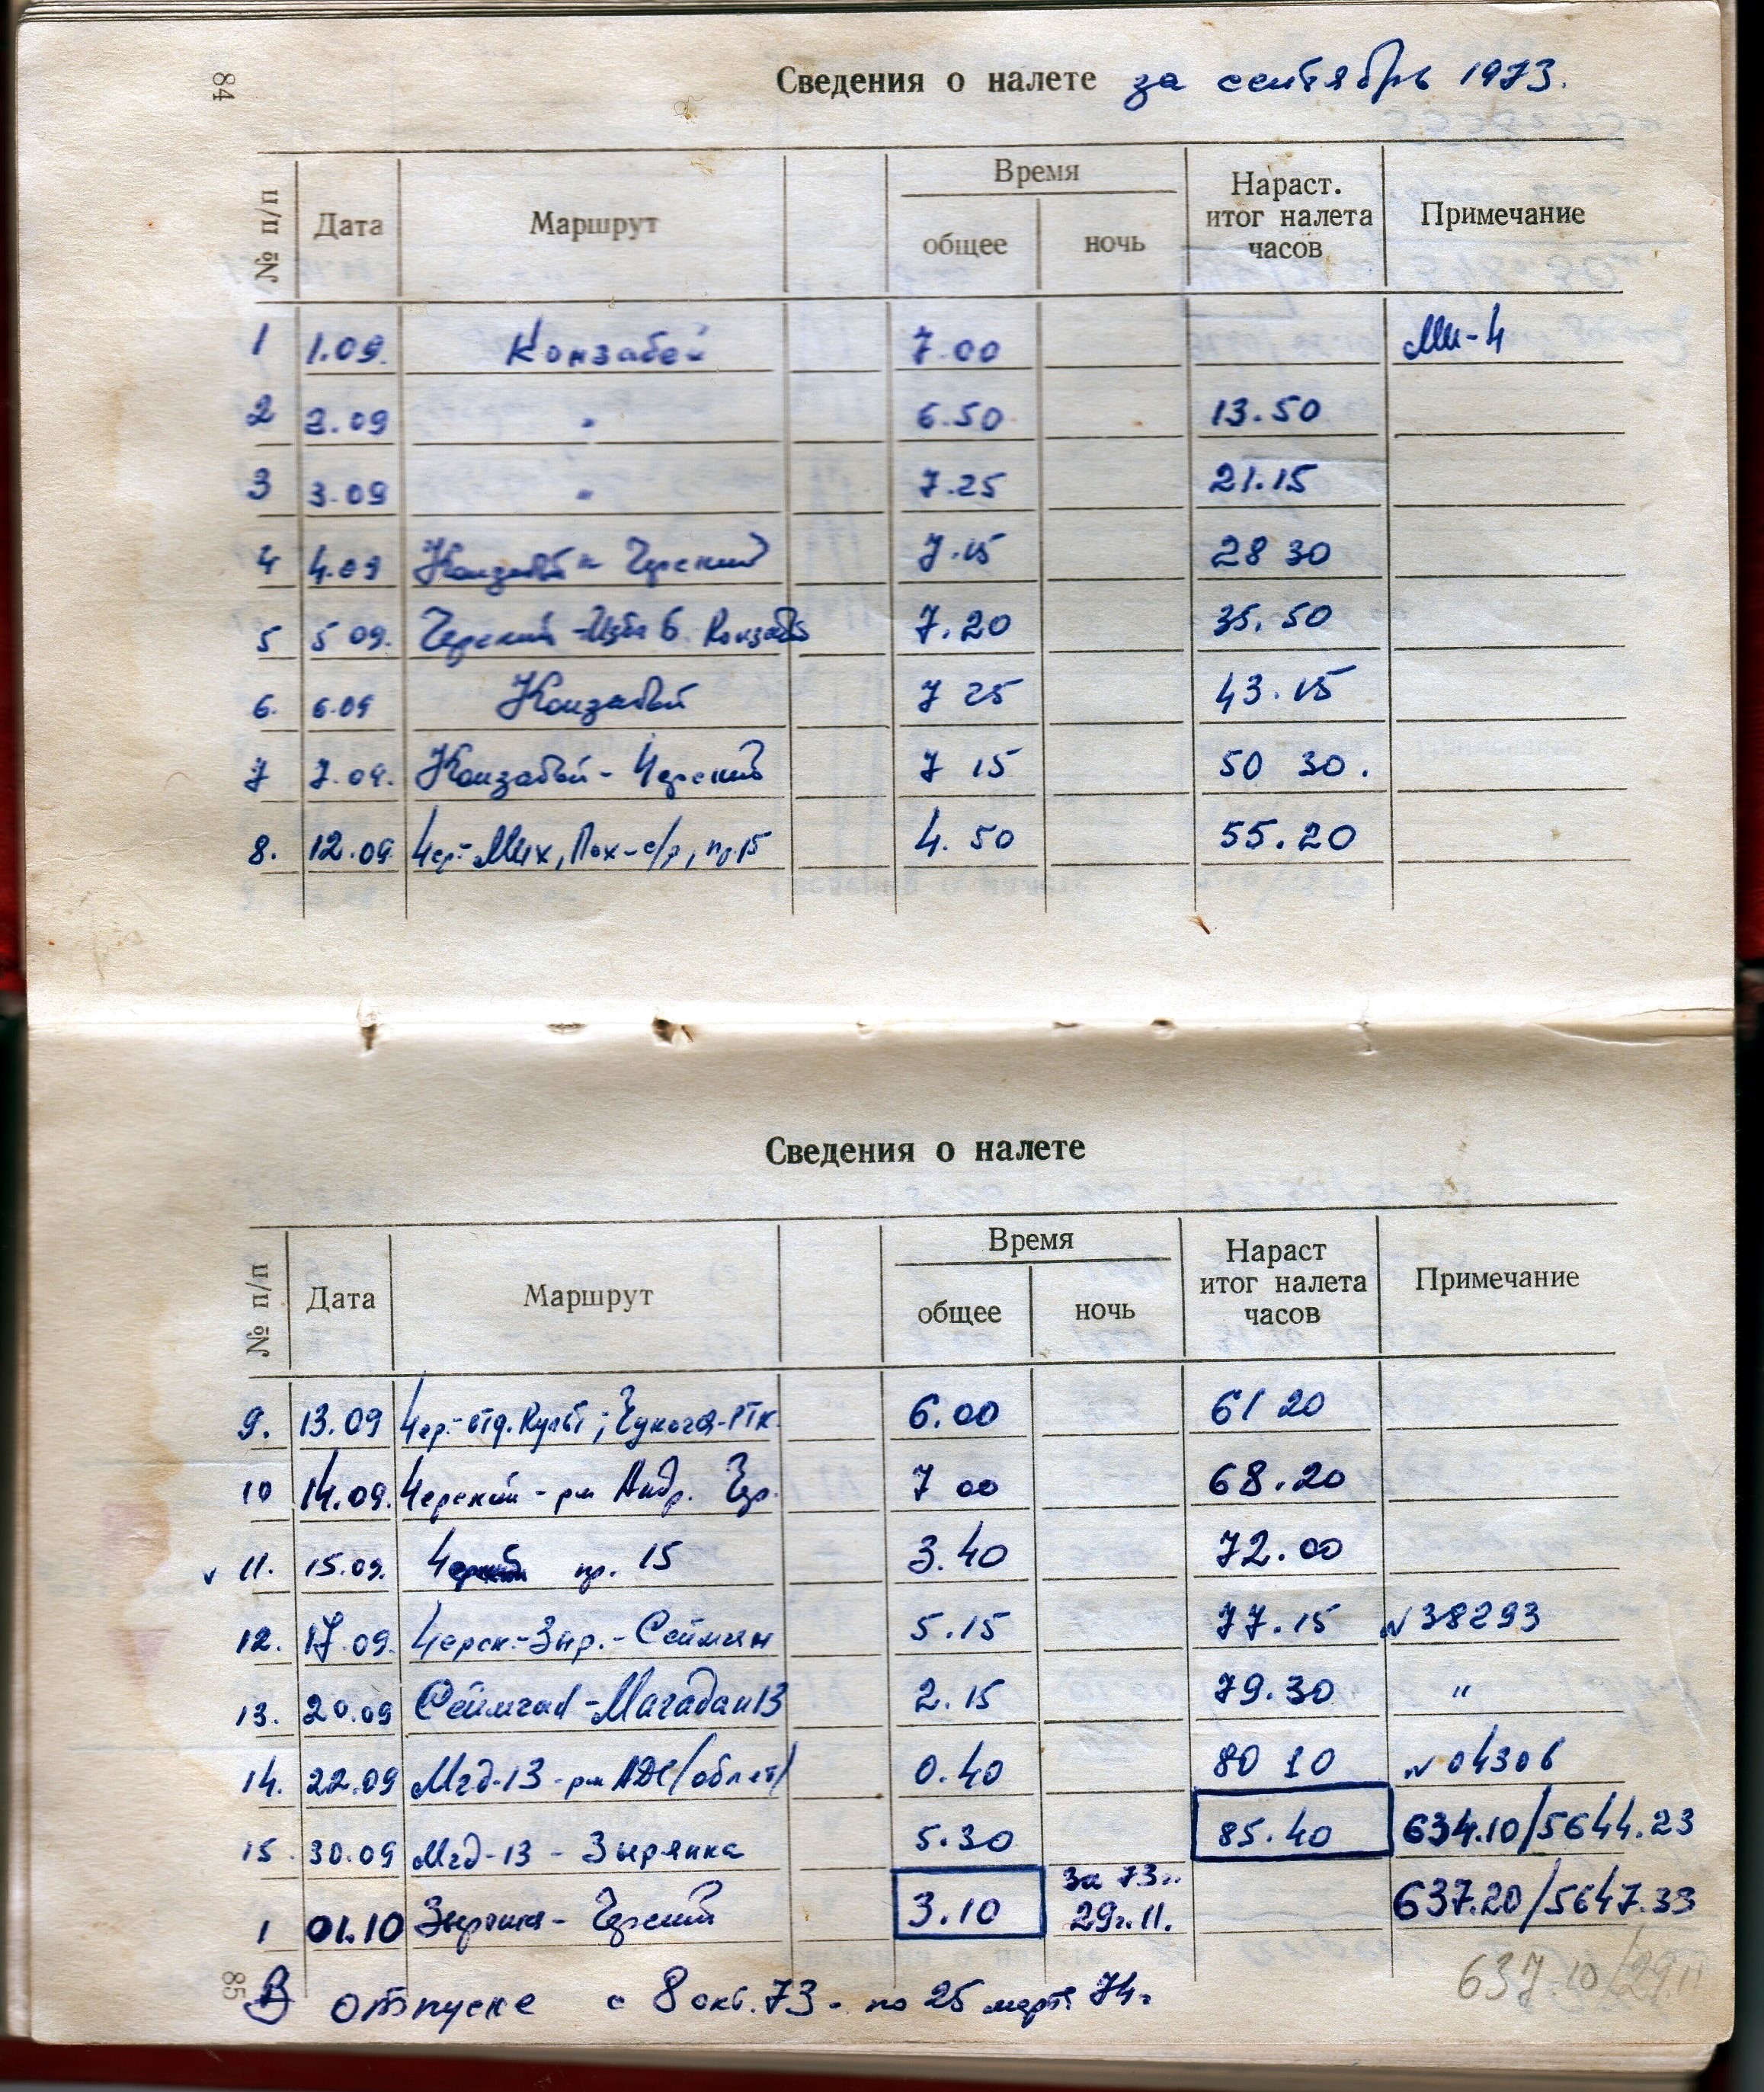 84
Сведения о налете за сентябрь 1973.
№ п/п Дата Маршрут Время общее ночь Нараст. итог налета часов Примечание
1 1.09. Конзабой 7.00 Ми-4
2 2.09 " 6.50 13.50
3 3.09 " 7.25 21.15
4 4.09 Конзабой - Черский 7.15 28 30
5 5 09. Черский - Изба 6 Конзабой 7.20 35.50
6. 6.09 Конзабой 7 25 43.15
7 7.09. Конзабой - Черский 7 15 50 30.
8. 12.09. Чер- Мих, Пох- с/р, пр.15 4.50 55.20
Сведения о налете
№ п/п Дата Маршрут Время общее ночь Нараст итог налета часов Примечание
9. 13.09 Чер.- отд. Культ; Чукочья-РТК 6.00 61 20
10 14.09. Черский - рн Андр. Чер. 7 00 68.20
v 11. 15.09. Черский пр. 15 3.40 72.00
12. 17.09. Черск.- Зыр.- Сеймчан 5.15 77.15 N 38293
13. 20.09 Сеймчан - Магадан 13 2.15 79.30 "
14. 22.09 Мгд-13 - рн АДС (облет) 0.40 80 10 N 04306
15. 30.09 Мгд-13 - Зырянка 5.30 85.40 634.10/5644.23
1 01.10 Зырянка - Черский 3.10 за 73г. 29ч.11. 637.20/5647.33
85 В отпуске с 8 окт. 73 - по 25 марта 74г. 637.10/29.11